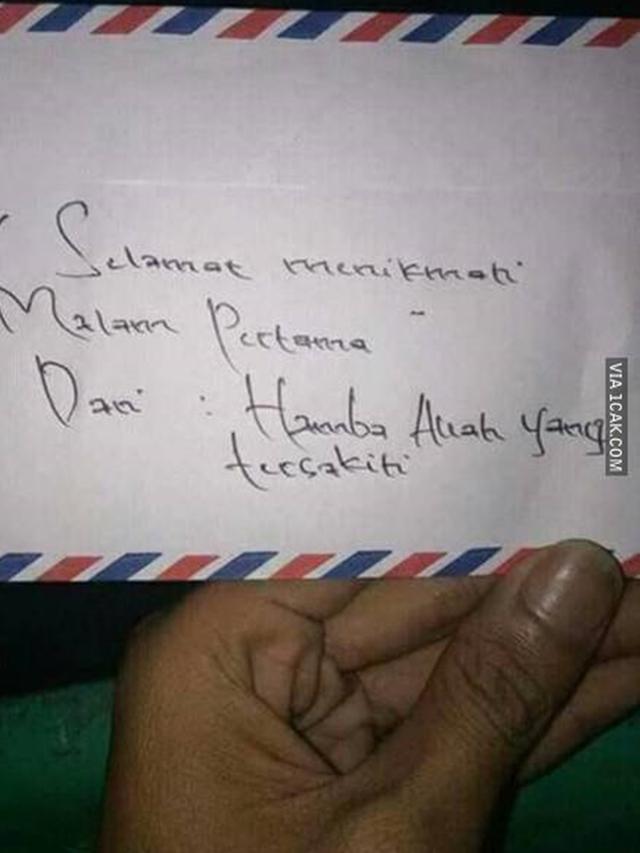 Selamat menikmati
Malam Pertama
Dari : Hamba Allah yang
tersakiti
VIA 1CAK.COM